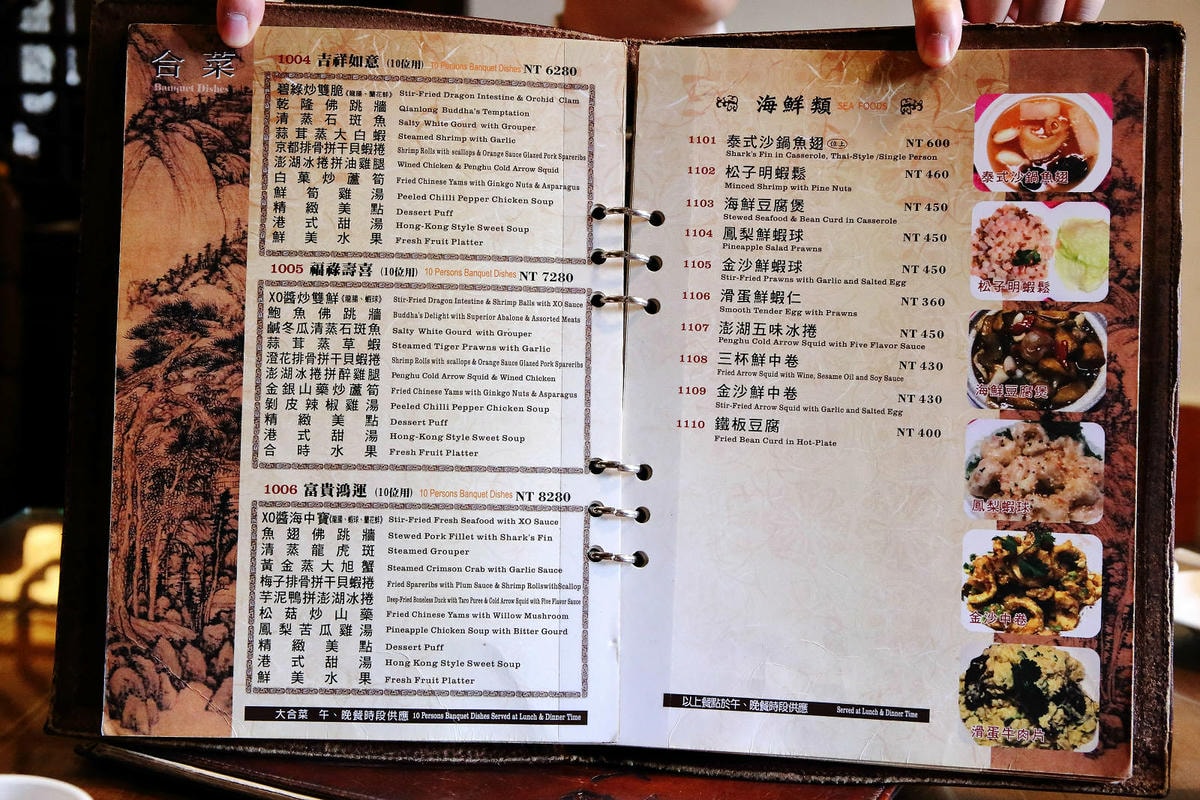 合菜
Banquet Dishes
1004 吉祥如意 (10位用) 10 Persons Banquet Dishes NT 6280
碧綠炒雙脆(龍腸、蘭花蚌) Stir-Fried Dragon Intestine & Orchid Clam
乾隆佛跳牆 Qianlong Buddha's Temptation
清蒸石斑魚 Salty White Gourd with Grouper
蒜茸蒸大白蝦 Steamed Shrimp with Garlic
京都排骨拼干貝蝦捲 Shrimp Rolls with scallops & Orange Sauce Glazed Pork Spareribs
澎湖冰捲拼油雞腿 Wined Chicken & Penghu Cold Arrow Squid
白菓炒蘆筍 Fried Chinese Yams with Ginkgo Nuts & Asparagus
鮮筍雞湯 Peeled Chilli Pepper Chicken Soup
精緻美點 Dessert Puff
港式甜湯 Hong-Kong Style Sweet Soup
鮮美水果 Fresh Fruit Platter
1005 福祿壽喜 (10位用) 10 Persons Banquet Dishes NT 7280
XO醬炒雙鮮(龍腸、蝦球) Stir-Fried Dragon Intestine & Shrimp Balls with XO Sauce
鮑魚佛跳牆 Buddha's Delight with Superior Abalone & Assorted Meats
鹹冬瓜清蒸石斑魚 Salty White Gourd with Grouper
蒜茸蒸草蝦 Steamed Tiger Prawns with Garlic
澄花排骨拼干貝蝦捲 Shrimp Rolls with scallops & Orange Sauce Glazed Pork Spareribs
澎湖冰捲拼醉雞腿 Penghu Cold Arrow Squid & Wined Chicken
金銀山藥炒蘆筍 Fried Chinese Yams with Ginkgo Nuts & Asparagus
剝皮辣椒雞湯 Peeled Chilli Pepper Chicken Soup
精緻美點 Dessert Puff
港式甜湯 Hong-Kong Style Sweet Soup
合時水果 Fresh Fruit Platter
1006 富貴鴻運 (10位用) 10 Persons Banquet Dishes NT 8280
XO醬海中寶(龍腸、蝦球、蘭花蚌) Stir-Fried Fresh Seafood with XO Sauce
魚翅佛跳牆 Stewed Pork Fillet with Shark's Fin
清蒸龍虎斑 Steamed Grouper
黃金蒸大旭蟹 Steamed Crimson Crab with Garlic Sauce
梅子排骨拼干貝蝦捲 Fried Spareribs with Plum Sauce & Shrimp RollswithScallop
芋泥鴨拼澎湖冰捲 Deep-Fried Boneless Duck with Taro Puree & Cold Arrow Squid with Five Flavor Sauce
松菇炒山藥 Fried Chinese Yams with Willow Mushroom
鳳梨苦瓜雞湯 Pineapple Chicken Soup with Bitter Gourd
精緻美點 Dessert Puff
港式甜湯 Hong Kong Style Sweet Soup
鮮美水果 Fresh Fruit Platter
大合菜 午、晚餐時段供應 10 Persons Banquet Dishes Served at Lunch & Dinner Time
海鮮類 SEA FOODS
1101 泰式沙鍋魚翅(位上) NT 600
Shark's Fin in Casserole, Thai-Style /Single Person
1102 松子明蝦鬆 NT 460
Minced Shrimp with Pine Nuts
1103 海鮮豆腐煲 NT 450
Stewed Seafood & Bean Curd in Casserole
1104 鳳梨鮮蝦球 NT 450
Pineapple Salad Prawns
1105 金沙鮮蝦球 NT 450
Stir-Fried Prawns with Garlic and Salted Egg
1106 滑蛋鮮蝦仁 NT 360
Smooth Tender Egg with Prawns
1107 澎湖五味冰捲 NT 450
Penghu Cold Arrow Squid with Five Flavor Sauce
1108 三杯鮮中卷 NT 430
Fried Arrow Squid with Wine, Sesame Oil and Soy Sauce
1109 金沙鮮中卷 NT 430
Stir-Fried Arrow Squid with Garlic and Salted Egg
1110 鐵板豆腐 NT 400
Fried Bean Curd in Hot-Plate
以上餐點於午、晚餐時段供應 Served at Lunch & Dinner Time
泰式沙鍋魚翅
松子明蝦鬆
海鮮豆腐煲
鳳梨蝦球
金沙中卷
滑蛋牛肉片